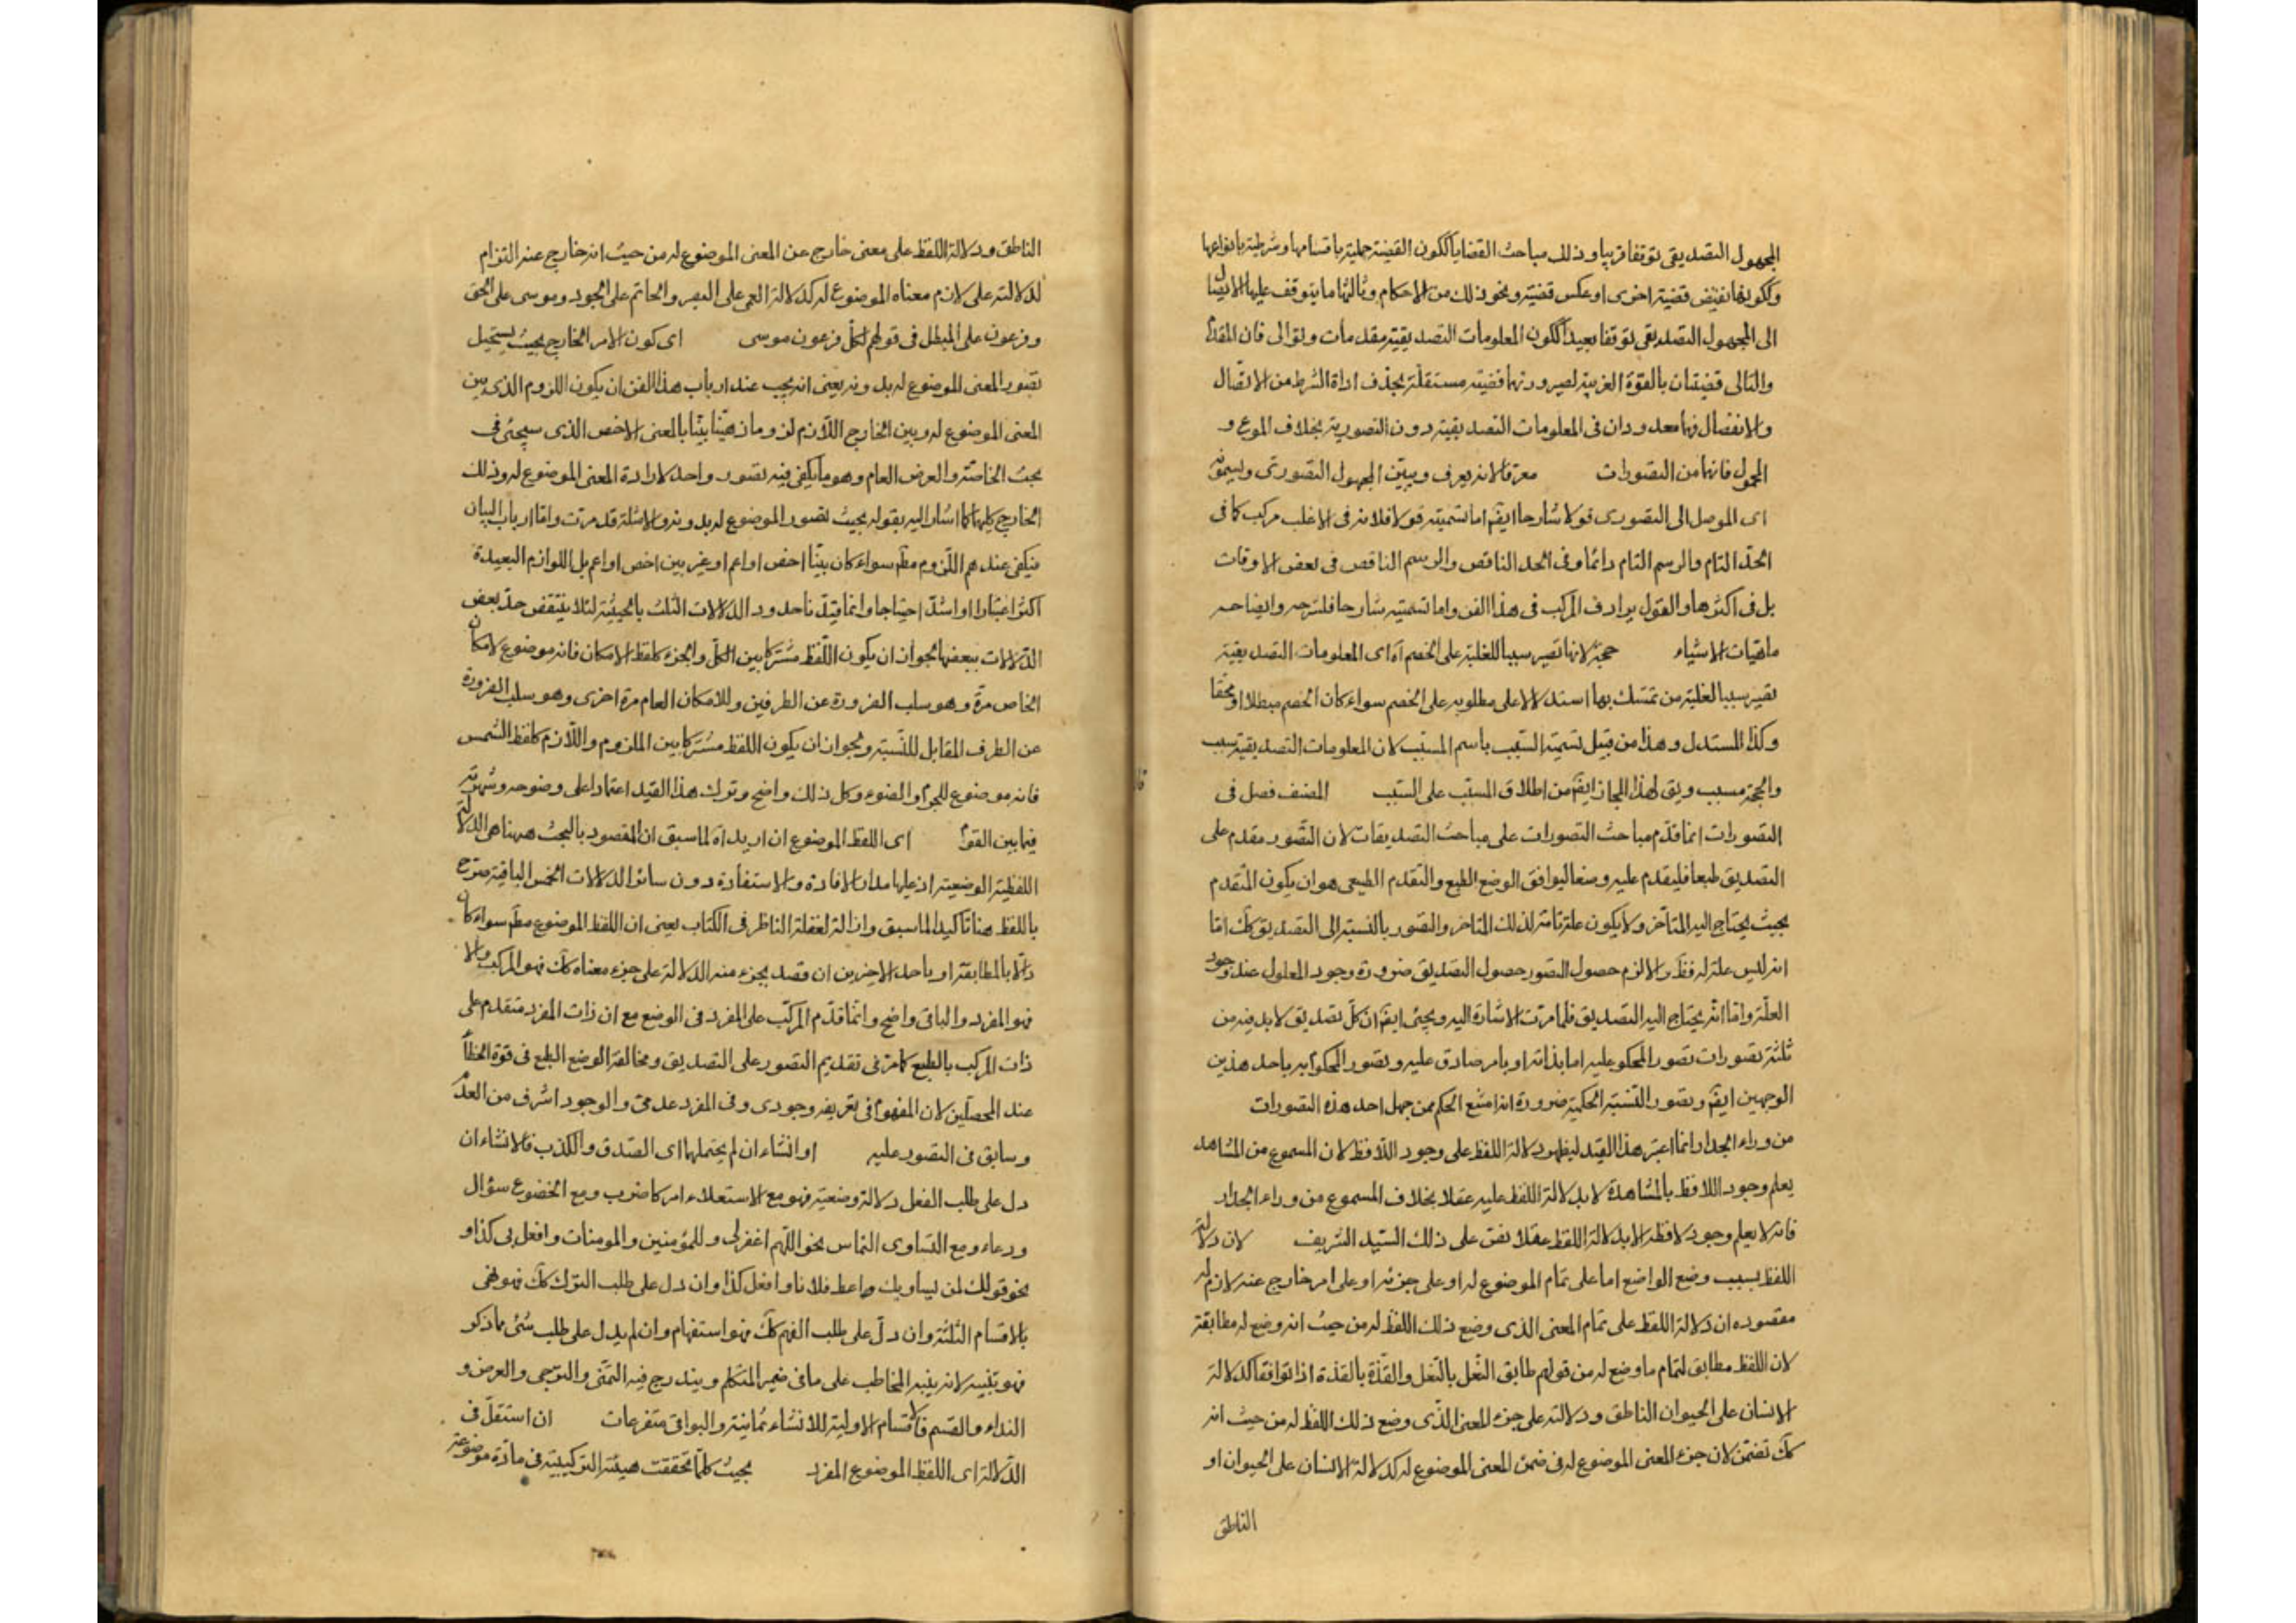 المجهول التصديقى توقفا قريبا وذلك مباحث القضايا ككون القضية حملية باقسامها وشرطية بانواعها
وككونها نقيض قضية اخرى او عكس قضية ونحو ذلك من الاحكام وثالثها ما يتوقف عليها الايصال
الى المجهول التصديقى توقفا بعيدا ككون المعلومات التصديقية مقدمات وتوالى فان المقدم
والتالى قضيتان بالقوة القريبة لصيرورتهما قضية مستقلة بحذف اداة الشرط من الاتصال
والانفصال فهما معدودان فى المعلومات التصديقية دون التصورية بخلاف الموع و
المحمول فانهما من التصورات معرفا لانه يعرف ويبين المجهول التصورى ويسمونه
اى الموصل الى التصورى قولا شارحا ايضا اما تسميته قولا فلانه فى الاغلب مركب كما فى
الحد التام والرسم التام دائما وفى الحد الناقص والرسم الناقص فى بعض الاوقات
بل فى اكثرها والقول يرادف المركب فى هذا الفن واما تسميته شارحا فلشرحه وايضاحه
ماهيات الاشياء حجة لانها تصير سببا للغلبة على الخصم آه اى المعلومات التصديقية
تصير سببا لغلبة من تمسك بها استدلالا على مطلوبه على الخصم سواء كان الخصم مبطلا او محقا
وكذا المستدل وهذا من قبيل تسمية السبب باسم المسبب لان المعلومات التصديقية سبب
والحجة مسبب ويق لهذا المجاز ايضا من اطلاق المسبب على السبب المصنف فصل فى
التصورات انما قدم مباحث التصورات على مباحث التصديقات لان التصور مقدم على
التصديق طبعا فليقدم عليه وضعا ليوافق الوضع الطبع والتقدم الطبيعى هو ان يكون المتقدم
بحيث يحتاج اليه المتاخر ولا يكون علة تامة لذلك المتاخر والتصور بالنسبة الى التصديق كك اما
انه ليس علة له فظ والا لزم حصول التصور حصول التصديق ضرورة وجود المعلول عند وجود
العلة واما انه يحتاج اليه التصديق فلما مرت الاشارة اليه ويجئ ايضا ان كل تصديق لا بد فيه من
ثلثة تصورات تصور المحكوم عليه اما بذاته او بامر صادق عليه وتصور المحكوم به باحد هذين
الوجهين ايضا وتصور النسبة الحكمية ضرورة امتناع الحكم ممن جهل احد هذه التصورات
من وراء الجدار انما اعتبر هذا القيد ليظهر دلالة اللفظ على وجود اللافظ لان المسموع من المشاهد
يعلم وجود اللافظ بالمشاهدة لا بدلالة اللفظ عليه عقلا بخلاف المسموع من وراء الجدار
فانه لا يعلم وجود لافظه الا بدلالة اللفظ عقلا نص على ذلك السيد الشريف لان دلالة
اللفظ بسبب وضع الواضع اما على تمام الموضوع له او على جزئه او على امر خارج عنه لازم له
مقصوده ان دلالة اللفظ على تمام المعنى الذى وضع ذلك اللفظ له من حيث انه وضع له مطابقة
لان اللفظ مطابق لتمام ما وضع له من قولهم طابق النعل بالنعل والقذة بالقذة اذا توافقا كدلالة
الانسان على الحيوان الناطق ودلالته على جزء المعنى الذى وضع ذلك اللفظ له من حيث انه
كك تضمن لان جزء المعنى الموضوع له فى ضمن المعنى الموضوع له كدلالة الانسان على الحيوان او
الناطق
الناطق ودلالة اللفظ على معنى خارج عن المعنى الموضوع له من حيث انه خارج عنه التزام
لدلالته على لازم معناه الموضوع له كدلالة العمى على البصر والحاتم على الجود وموسى على الحق
وفرعون على المبطل فى قولهم لكل فرعون موسى اى كون الامر الخارج بحيث يستحيل
تصور المعنى الموضوع له بدونه يعنى انه يجب عند ارباب هذا الفن ان يكون اللزوم الذى بين
المعنى الموضوع له وبين الخارج اللازم لزوما ذهنيا بينا بالمعنى الاخص الذى سيجئ فى
بحث الخاصة والعرض العام وهو ما يكفى فيه تصور واحد لارادة المعنى الموضوع له وذلك
الخارج كليهما كما اشار اليه بقوله بحيث تصور الموضوع له بدونه والامثلة قد مرت واما ارباب البيان
فيكفى عندهم اللزوم مطلقا سواء كان بينا اخص او اعم او غير بين اخص او اعم بل اللوازم البعيدة
اكثر اعتبارا واشد احتياجا وانما قيد تاحدود الدلالات الثلث بالحيثية لئلا ينتقض حد بعض
الدلالات ببعضها لجواز ان يكون اللفظ مشتركا بين الكل والجزء كلفظ الامكان فانه موضوع لامكان
الخاص مرة وهو سلب الضرورة عن الطرفين وللامكان العام مرة اخرى وهو سلب الضرورة
عن الطرف المقابل للنسبة ولجواز ان يكون اللفظ مشتركا بين الملزوم واللازم كلفظ الشمس
فانه موضوع للجرم والضوء وكل ذلك واضح وترك هذا القيد اعتمادا على وضوحه وشهرته
فيما بين القوم اى اللفظ الموضوع ان اريد آه لما سبق ان المقصود بالبحث ههنا هى الدلالة
اللفظية الوضعية اذ عليها مدار الافادة والاستفادة دون سائر الدلالات الخمس الباقية صرح
باللفظ هنا تاكيدا لما سبق وازالة لغفلة الناظر فى الكتاب يعنى ان اللفظ الموضوع مطلقا سواء كان
دالا بالمطابقة او باحد الاخرين ان قصد بجزء منه الدلالة على جزء معناه كك فهو المركب والا
فهو المفرد والباقى واضح وانما قدم المركب على المفرد فى الوضع مع ان ذات المفرد متقدم على
ذات المركب بالطبع كما مر فى تقديم التصور على التصديق ومخالفة الوضع الطبع فى قوة الخطأ
عند المحصلين لان المفهوم فى تعريفه وجودى وفى المفرد عدمى والوجود اشرف من العدم
وسابق فى التصور عليه او انشاء ان لم يحتملهما اى الصدق والكذب فالانشاء ان
دل على طلب الفعل دلالة وضعية فهو مع الاستعلاء امر كاضرب ومع الخضوع سؤال
ودعاء ومع التساوى التماس نحو اللهم اغفر لى وللمؤمنين والمومنات وافعل بى كذا و
نحو قولك لمن يساويك اعط فلانا وافعل كذا وان دل على طلب الترك كك فهو نهى
بالاقسام الثلثة وان دل على طلب الفهم كك فهو استفهام وان لم يدل على طلب شئ مما ذكر
فهو تنبيه لانه ينبه المخاطب على ما فى ضمير المتكلم ويندرج فيه التمنى والترجى والعرض و
النداء والقسم فالاقسام الاولية للانشاء ثمانية والبواقى متفرعات ان استقل فى
الدلالة اى اللفظ الموضوع المفرد بحيث كلما تحققت هيئته التركيبية فى مادة موضوعة